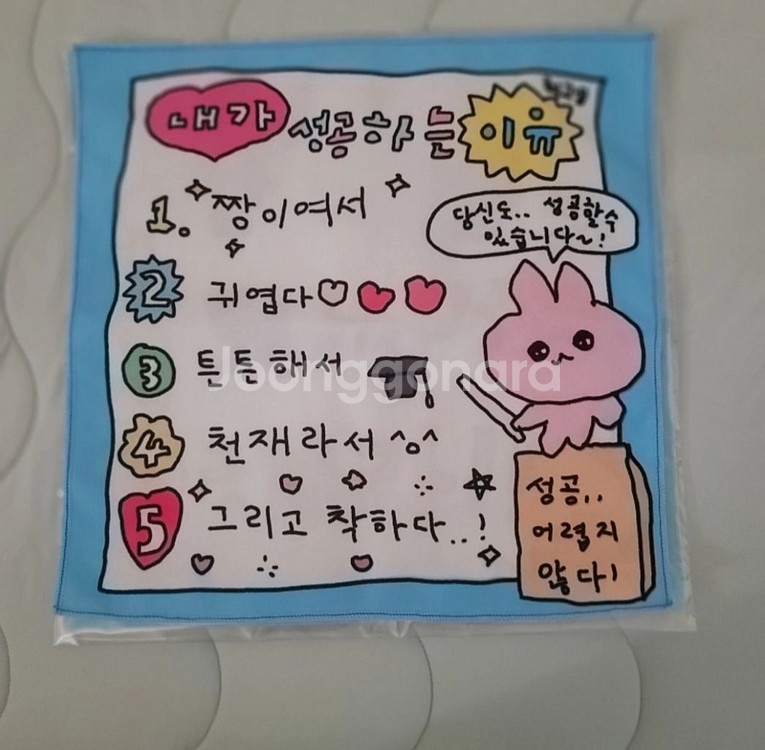 내가 성공하는 이유
1. 짱이여서
당신도.. 성공할수
있습니다~!
2 귀엽다♡♥♥
3 튼튼해서
Joonggonara
4 천재라서 ^o^
5 그리고 착하다..!
성공..
어렵지
않다!